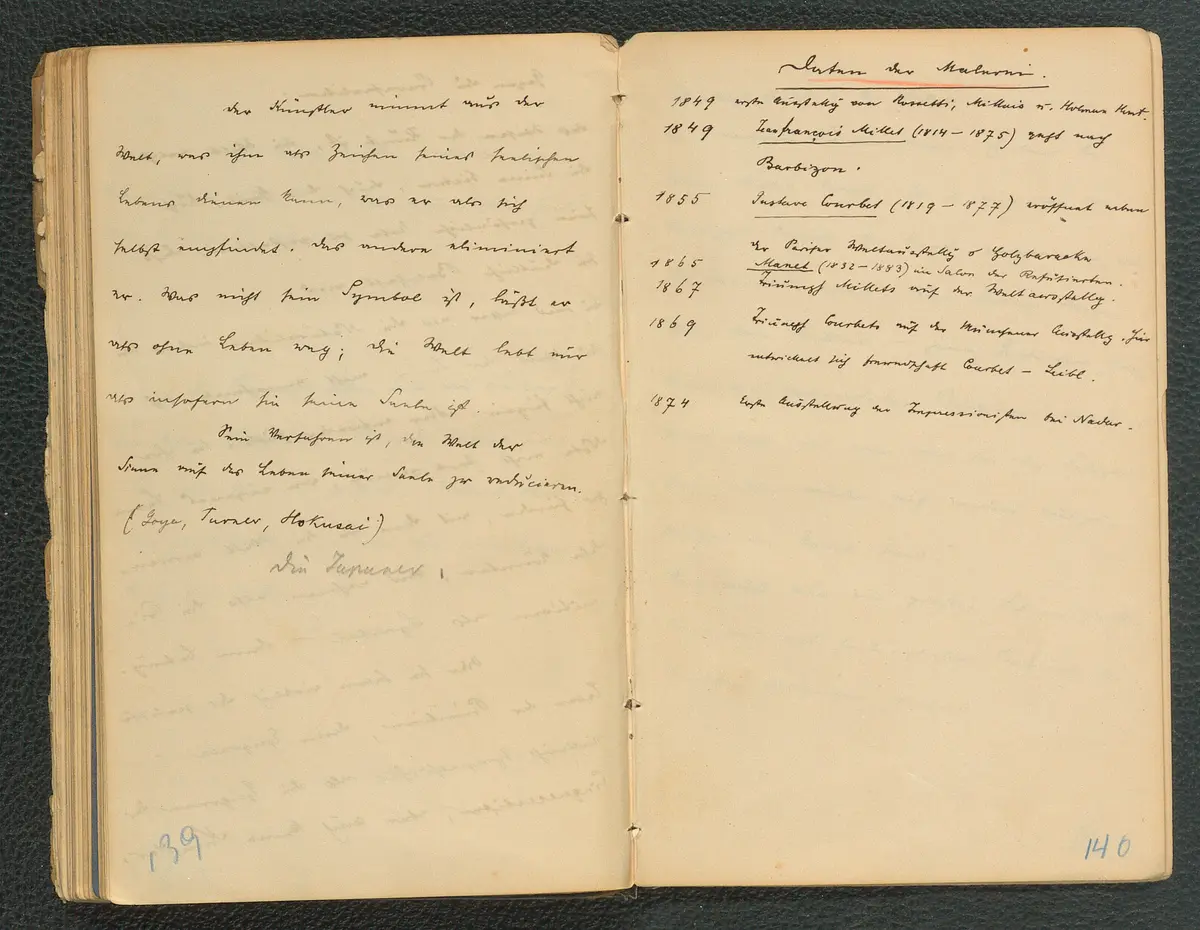 Der Künstler nimmt aus der
Welt, was ihm als Zeichen seines seelischen
Lebens dienen kann, was er als sich
selbst empfindet. Das andere eliminiert
er. Was nicht sein Symbol ist, läßt er
als ohne Leben weg; die Welt lebt nur
als insofern sie seine Seele ist.
Sein Verfahren ist, die Welt der
Sinne auf das Leben seiner Seele zu reducieren.
(Goya, Turner, Hokusai)
Die Japaner,
139
Daten der Malerei.
1849 erste Ausstellg von Rossetti, Millais u. Holman Hunt.
1849 Jean françois Millet (1814 – 1875) geht nach
Barbizon.
1855 Gustave Courbet (1819 – 1877) eröffnet neben
der Pariser Weltausstellg s Holzbaracke
1865 Manet (1832 – 1883) im Salon der Refüsierten.
1867 Triumph Millets auf der Weltausstellg.
1869 Triumph Courbets auf der Münchener Ausstellg. Hier
entwickelt sich freundschaft Courbet – Leibl.
1874 Erste Ausstellung der Impressionisten bei Nadar.
140